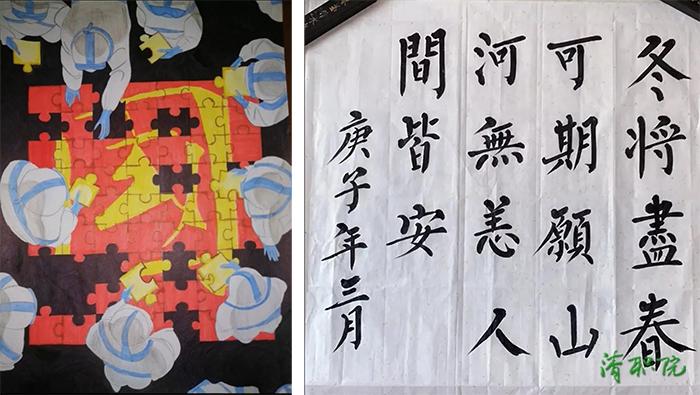 冬将盡春
可期願山
河無恙人
間皆安
庚子年三月
清职院